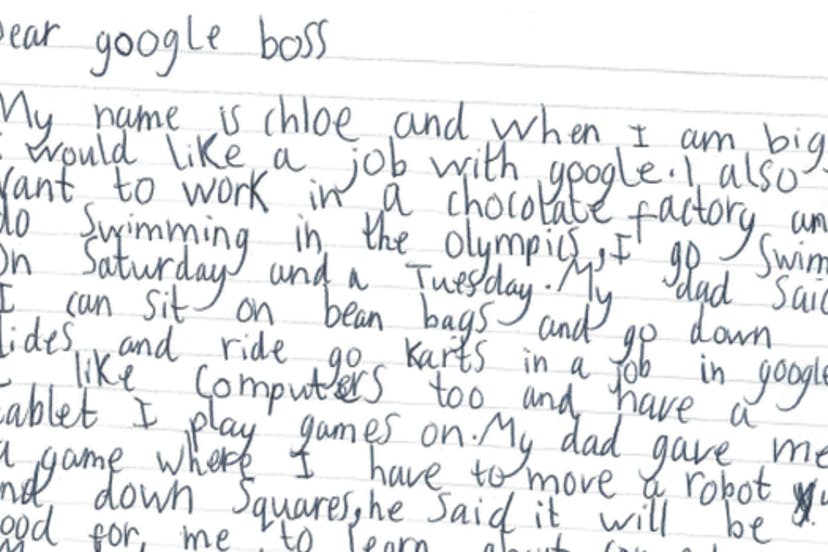 ear google boss
My name is chloe and when I am big
i would like a job with google. I also
Want to work in a chocolate factory an
do Swimming in the olympics, I go Swim
On Saturday and a Tuesday. My dad Said
I can sit on bean bags and go down
lides and ride go Karts in a job in google
I like Computers too and have a
tablet I play games on. My dad gave me
a game where I have to move a robot
nd down Squares, he said it will be
ood for me to learn about